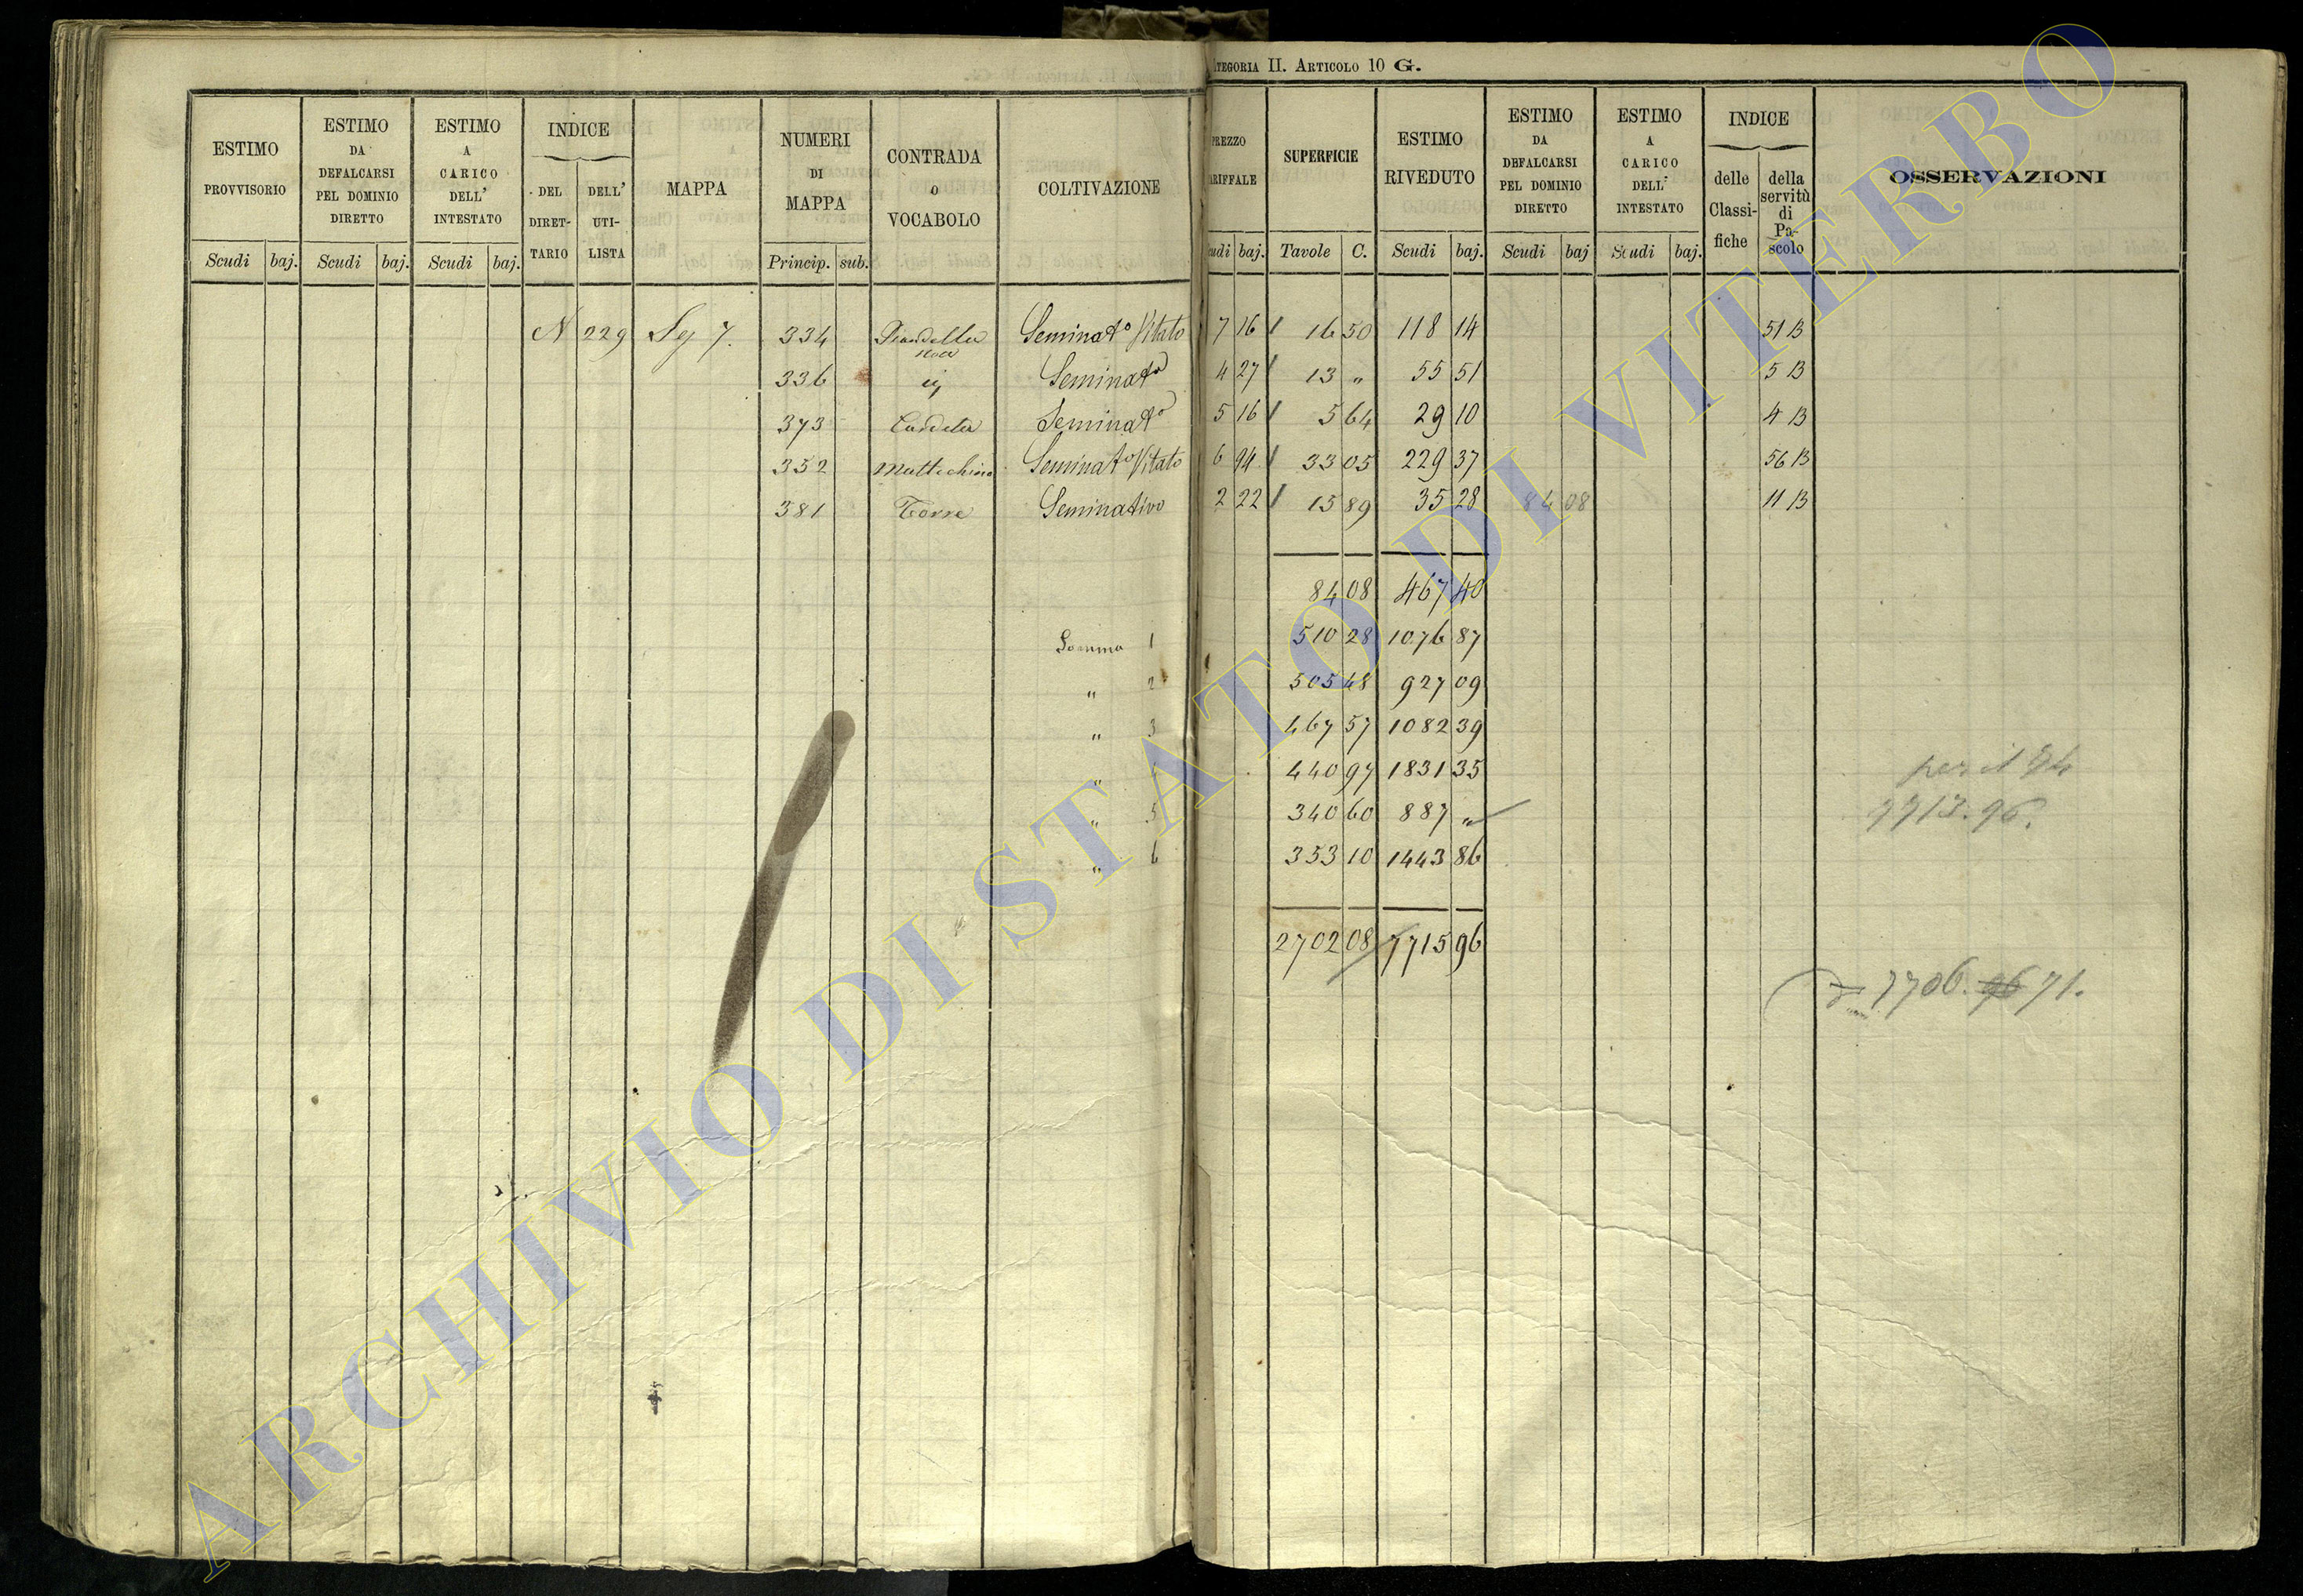 CATEGORIA II. ARTICOLO 10 G.
ESTIMO PROVVISORIO Scudi baj.
ESTIMO DA DEFALCARSI PEL DOMINIO DIRETTO Scudi baj.
ESTIMO A CARICO DELL' INTESTATO Scudi baj.
INDICE DEL DIRETTARIO DELL' UTILISTA
MAPPA
NUMERI DI MAPPA Princip. sub.
CONTRADA O VOCABOLO
COLTIVAZIONE
PREZZO TARIFFALE Scudi baj.
SUPERFICIE Tavole C.
ESTIMO RIVEDUTO Scudi baj.
ESTIMO DA DEFALCARSI PEL DOMINIO DIRETTO Scudi baj
ESTIMO A CARICO DELL' INTESTATO Scudi baj.
INDICE delle Classifiche della servitù di Pascolo
OSSERVAZIONI
N 229 Sez 7. 334 Seminato Vitato 7 16 16 50 118 14 51 B
336 Seminato 4 27 13 " 55 51 5 B
373 Seminato 5 16 5 64 29 10 4 B
352 Seminato Vitato 6 94 33 05 229 37 56 B
381 Torre Seminativo 2 22 15 89 35 28 84 08 11 B
84 08 467 40
Somma 1 510 28 1076 87
" 2 505 48 927 09
" 3 467 57 1082 39
" 440 97 1831 35
" 5 340 60 887 "
" 6 353 10 1443 86
per il 74
7713.96.
2702 08 7715 96
7706. 96 71.
ARCHIVIO DI STATO DI VITERBO